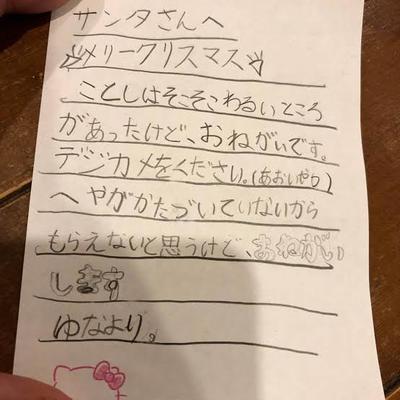 サンタさんへ
メリークリスマス
ことしはそこそこわるいところ
があったけど、おねがいです。
デジカメをください。(あおいやつ)
へやがかたづいていないから
もらえないと思うけど、おねがい
します
ゆなより。